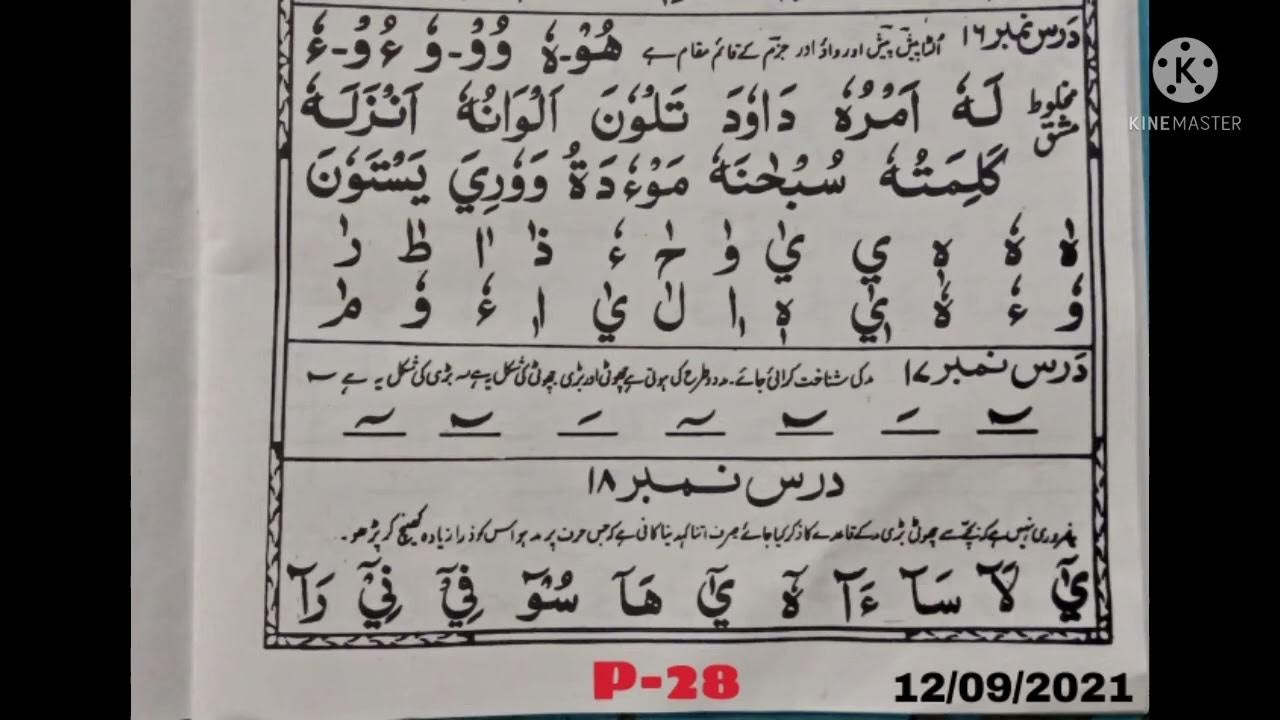 درس نمبر ۱۶ اُلٹا پیش پیش اور واؤ اور جزم کے قائم مقام ہے هُوْ۔هٗ وُوْ۔وٗ ءُوْ۔ءٗ
مخلوط مشق لَهٗ اَمْرُهٗ دَاوٗدَ تَلْوٗنَ اَلْوَانُهٗ اَنْزَلَهٗ
كَلِمَتُهٗ سُبْحٰنَهٗ مَوْءٗدَةُ وَوٗرِيَ يَسْتَوٗنَ
هٰ هٗ هٖ يٖ يٰ وٰ حٰ ءٗ ذٰ اٰ طٰ رٰ
وٗ ءٗ هٗ يٖ هٖ اٖ لٰ يٰ اٖ ءٗ وٗ مٰ
درس نمبر ۱۷ مد کی شناخت کرائی جائے۔ مد دو طرح کی ہوتی ہے چھوٹی اور بڑی چھوٹی کی شکل یہ ہے ~ بڑی کی شکل یہ ہے ~
درس نمبر ۱۸
ضروری نہیں ہے کہ بچے سے چھوٹی بڑی مد کے قاعدے کا ذکر کیا جائے صرف اتنا کہہ دینا کافی ہے کہ جس حرف پر مد ہو اس کو ذرا زیادہ کھینچ کر پڑھو۔
يٰٓ لَآ سَآ ءَآ هٗٓ يٰٓ هَآ سُوْٓ فِيْٓ نِيْٓ رَآ
P-28 12/09/2021
KINEMASTER